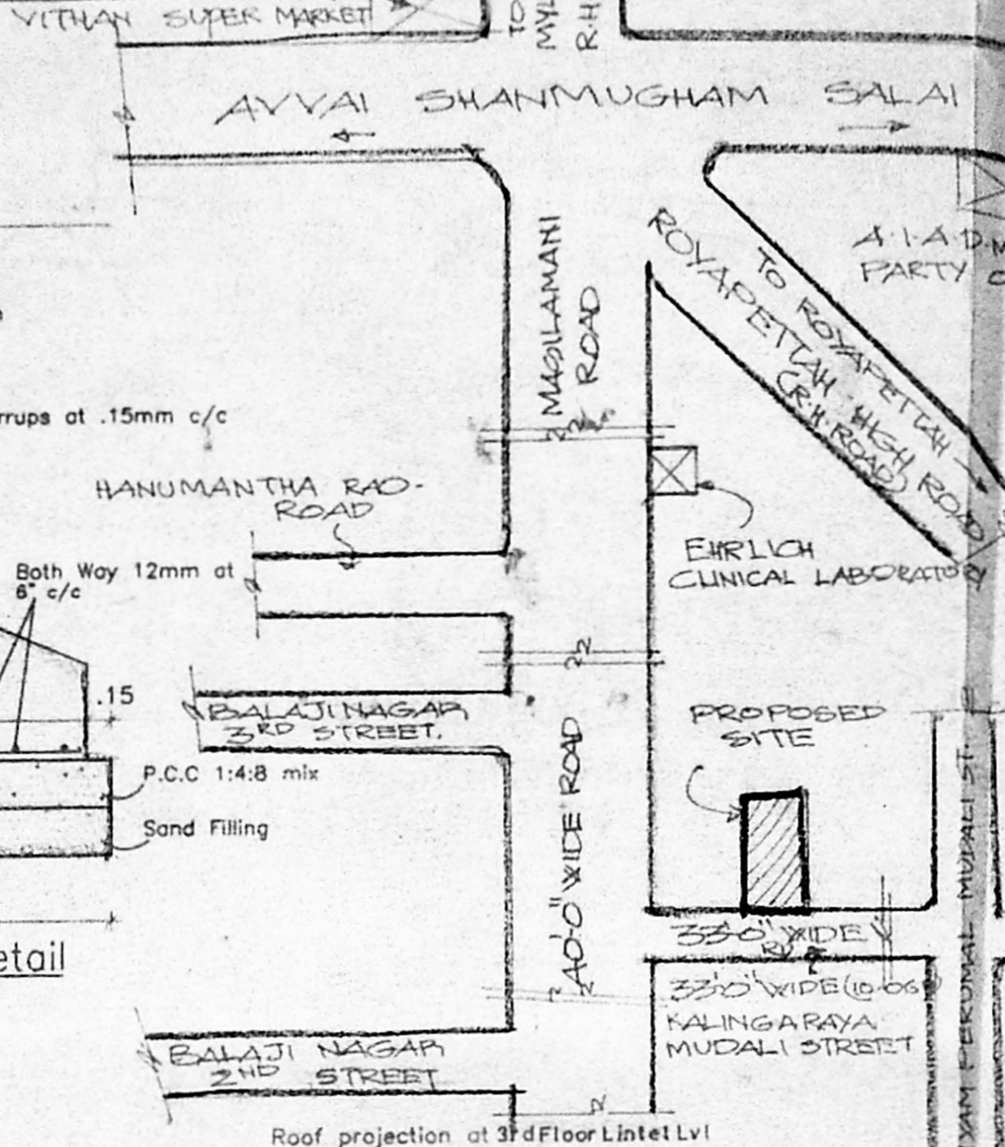 VITHAN SUPER MARKET
TO
R.H
AVVAI SHANMUGHAM SALAI
MASILAMANI
ROAD
TO ROYAPETTAH
ROYAPETTAH HIGH ROAD
(R.H.ROAD)
A.I.A.D.M
PARTY
rrups at .15mm c/c
HANUMANTHA RAO-
ROAD
EHRLICH
CLINICAL LABORATORY
Both Way 12mm at
6" c/c
.15
BALAJI NAGAR
3RD STREET.
PROPOSED
SITE
P.C.C 1:4:8 mix
Sand Filling
40'-0" WIDE ROAD
etail
33'-0" WIDE
33'-0" WIDE (10.06
KALINGARAYA
MUDALI STREET
PERUMAL MUDALI ST
BALAJI NAGAR
2ND STREET
Roof projection at 3rdFloorLintelLvl